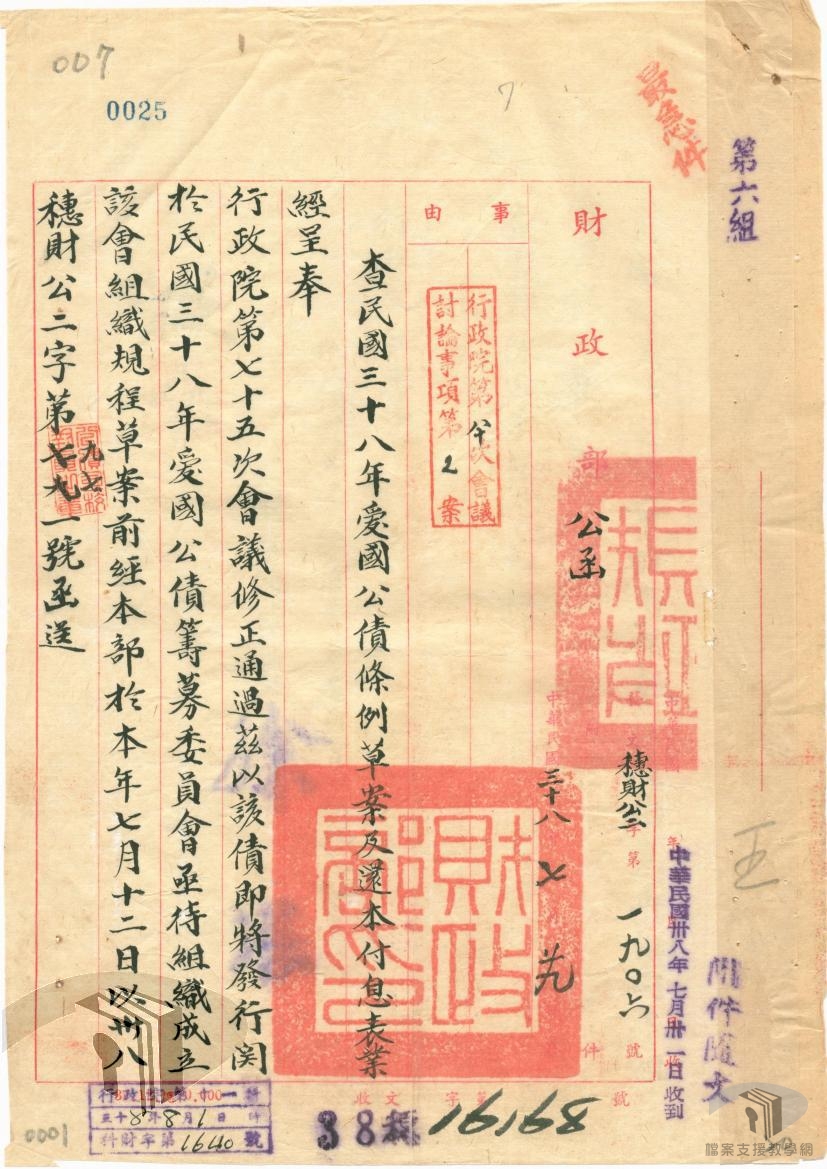 007
0025
7
最急件
第六組
財政部公函
穗財公二字第一九〇六號
中華民國三十八 七 廿九
中華民國卅八年七月卅一日收到
附件隨文
王
事由
行政院第 次會議
討論事項第2案
查民國三十八年愛國公債條例草案及還本付息表業
經呈奉
行政院第七十五次會議修正通過茲以該債即將發行関
於民國三十八年愛國公債籌募委員會亟待組織成立
該會組織規程草案前經本部於本年七月十二日以卅八
穗財公二字第九七一號函送
財政部印
收文 字第 號
38穗 19168
三十八年8月1日 時
科財字第1640號
0001
檔案支援教學網